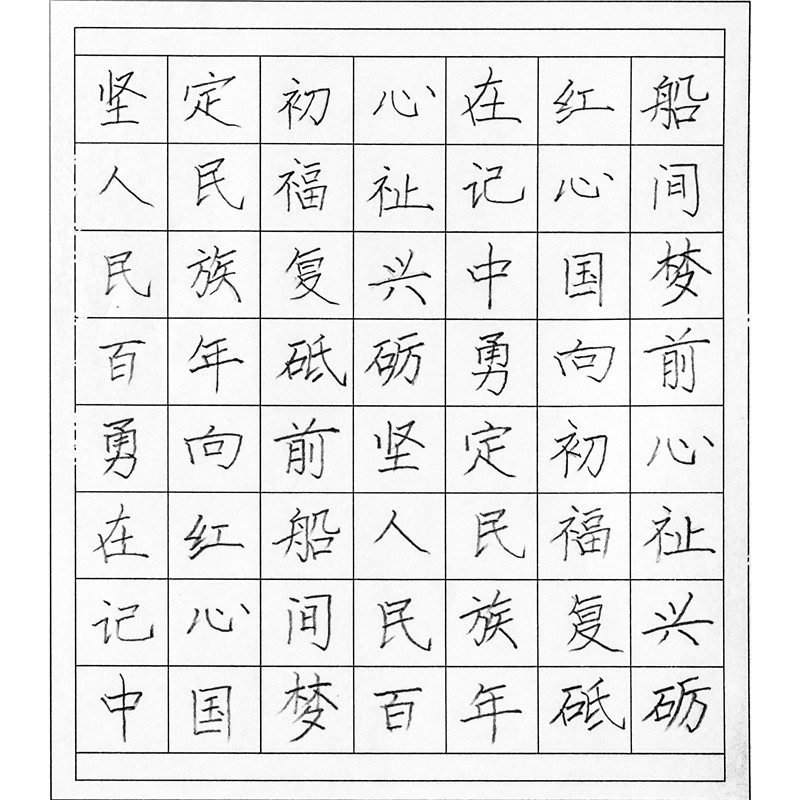 坚定初心在红船
人民福祉记心间
民族复兴中国梦
百年砥砺勇向前
勇向前坚定初心
在红船人民福祉
记心间民族复兴
中国梦百年砥砺